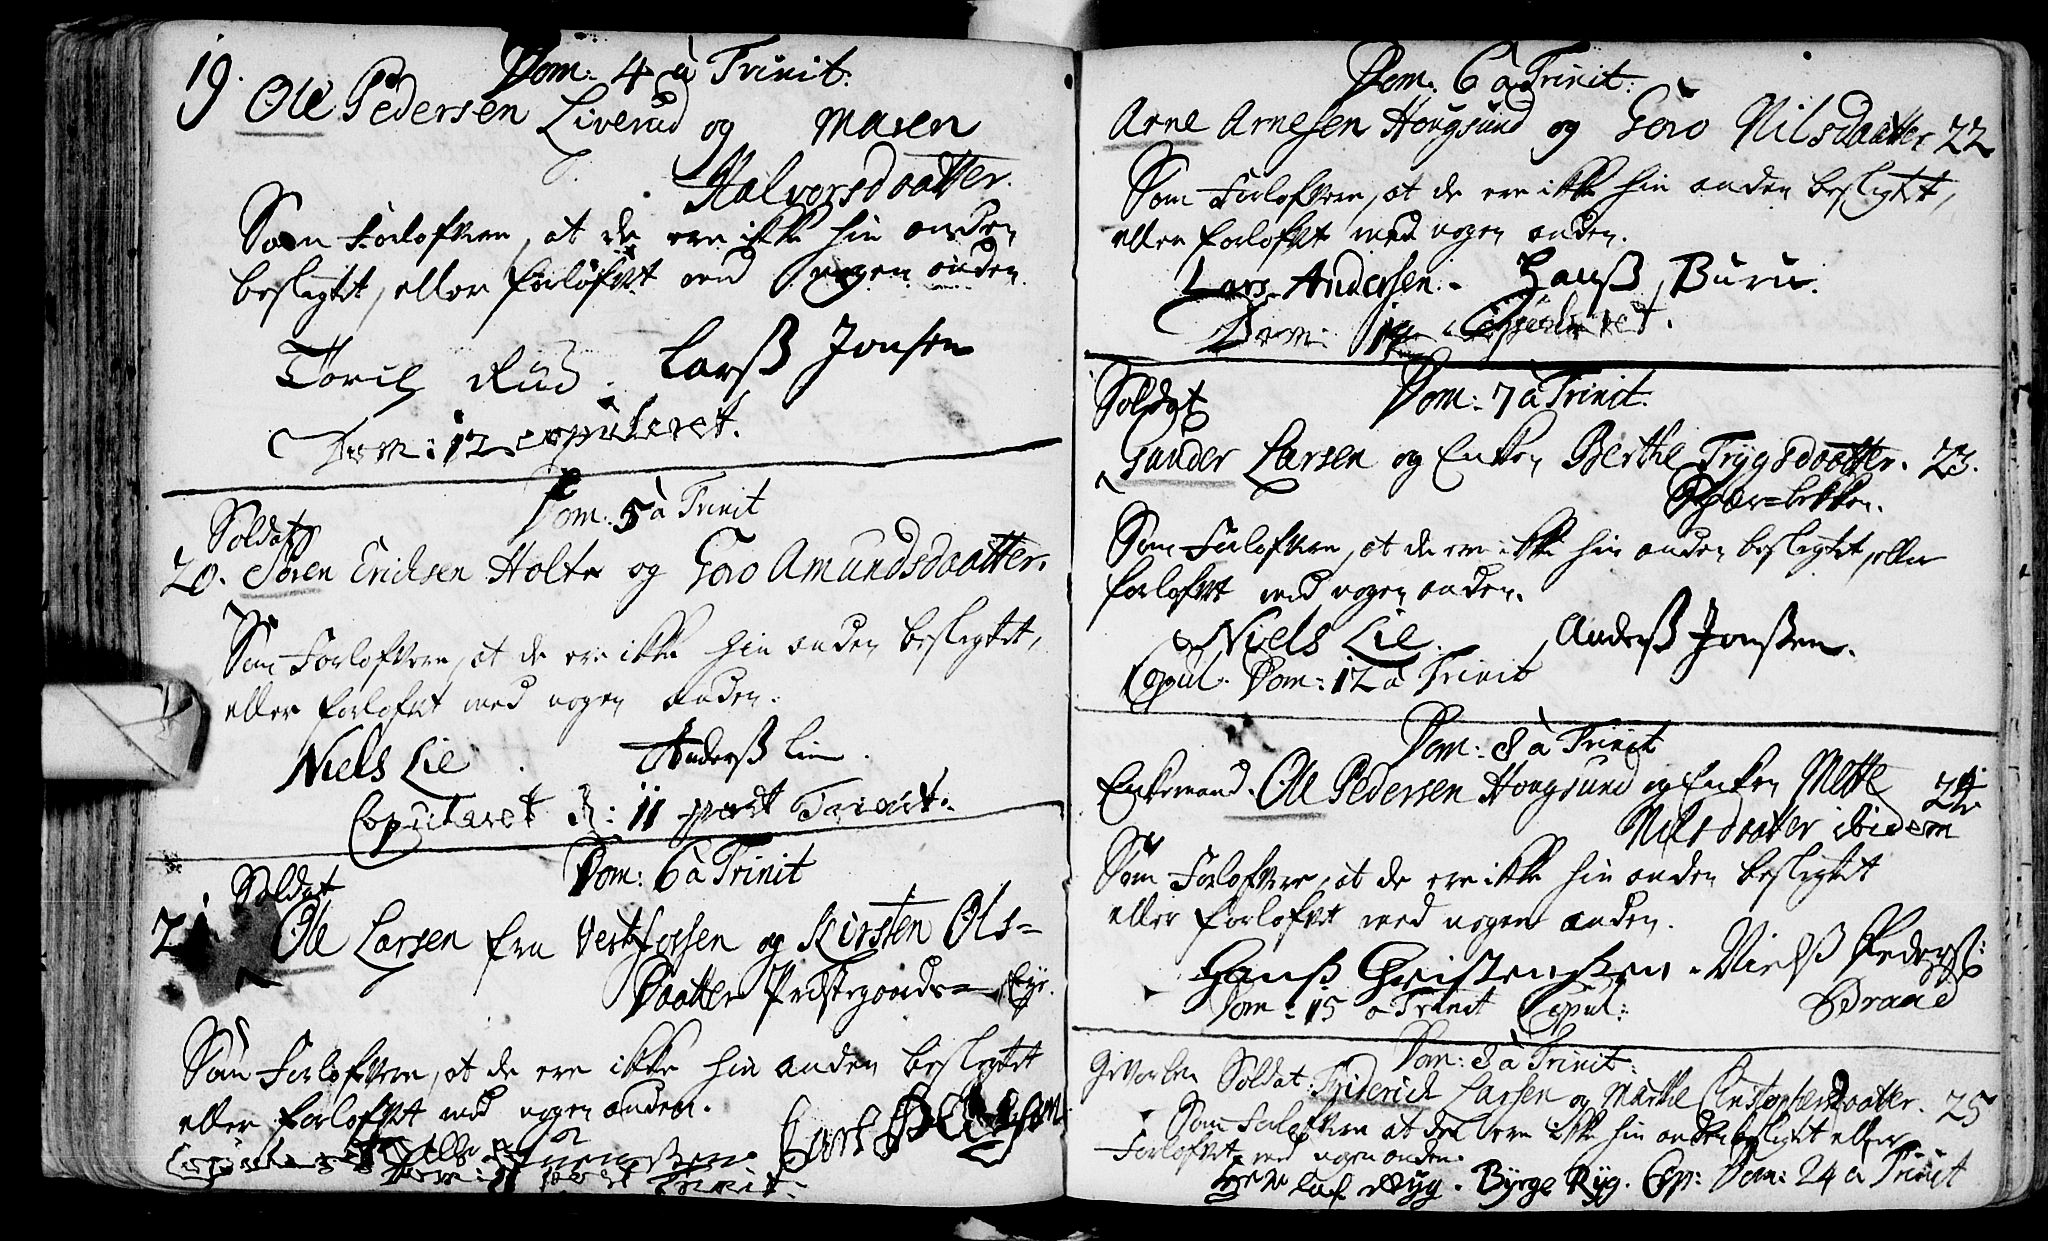 19. Dom: 4 à Trinit:
Ole Pedersen Liverud og Maren
Halvorsdaatter.
Som Forlofvere, at de ere ikke hin anden
beslegtet, eller forlofvet med nogen anden.
Toril Rud. Larss Jonsen
Dom: 12 copuleret.
Dom: 5 à Trinit
Soldat
20. Søren Ericksen Holte og Goro Amundsdaatter.
Som Forlofvere, at de ere ikke hin anden beslegtet,
eller forlofvet med nogen anden.
Niels Lie. Anderss Lie.
Copuleret D: 11 post Trinit:
Dom: 6 à Trinit
Soldat
21 Ole Larsen fra Vestfossen og Kirsten Ols=
Daatter Præstegaards= Eye.
Som Forlofvere, at de ere ikke hin anden beslegtet
eller forlofvet med nogen anden.
Dom: 11 post Trinit:
Dom. 6 à Trinit:
Arne Arnesen Hougsund og Goro Nilsdaatter 22
Som Forlofvere, at de ere ikke hin anden beslegtet,
eller forlofvet med nogen anden.
Lars Andersen. Hanss Buru.
Dom: Copuleret.
Dom: 7 à Trinit.
Soldat
Gunder Larsen og Enken Berthe Trygsdaatter. 23.
Skjær=bekken.
Som Forlofvere, at de ere ikke hin anden beslegtet, eller
forlofvet med nogen anden.
Niels Lie. Anderss Jonssen.
Copul. Dom: 12 à Trinit
Dom: 8 à Trinit
Enkemand. Ole Pedersen Hougsund og Enken Mette 24
Nilsdaatter ibidem
Som Forlofvere, at de ere ikke hin anden beslegtet
eller forlofvet med nogen anden.
Hanss Christenssen. Nielss Pederss:
Dom: 15 à Trinit Copul: Braae
Dom: 8 à Trinit:
Givorben Soldat: Friderich Larsen og Marthe Christophersdaatter. 25
Som Forlofvere at de ere ikke hin anden beslegtet eller
forlofvet med nogen anden.
Ryg. Byrge Ryg. Cop: Dom: 24 à Trinit